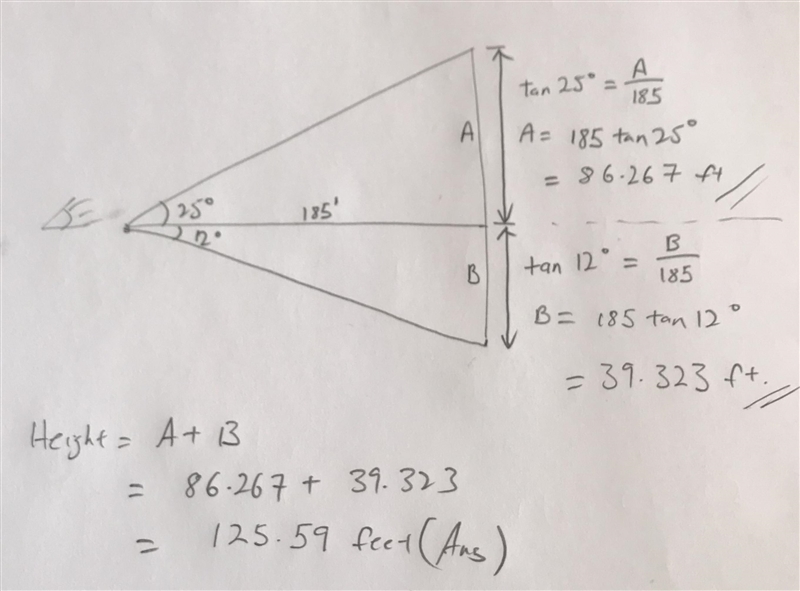 25°
185'
12°
A
B
tan 25° = A/185
A = 185 tan 25°
= 86.267 ft
tan 12° = B/185
B = 185 tan 12°
= 39.323 ft.
Height = A + B
= 86.267 + 39.323
= 125.59 feet (Ans)